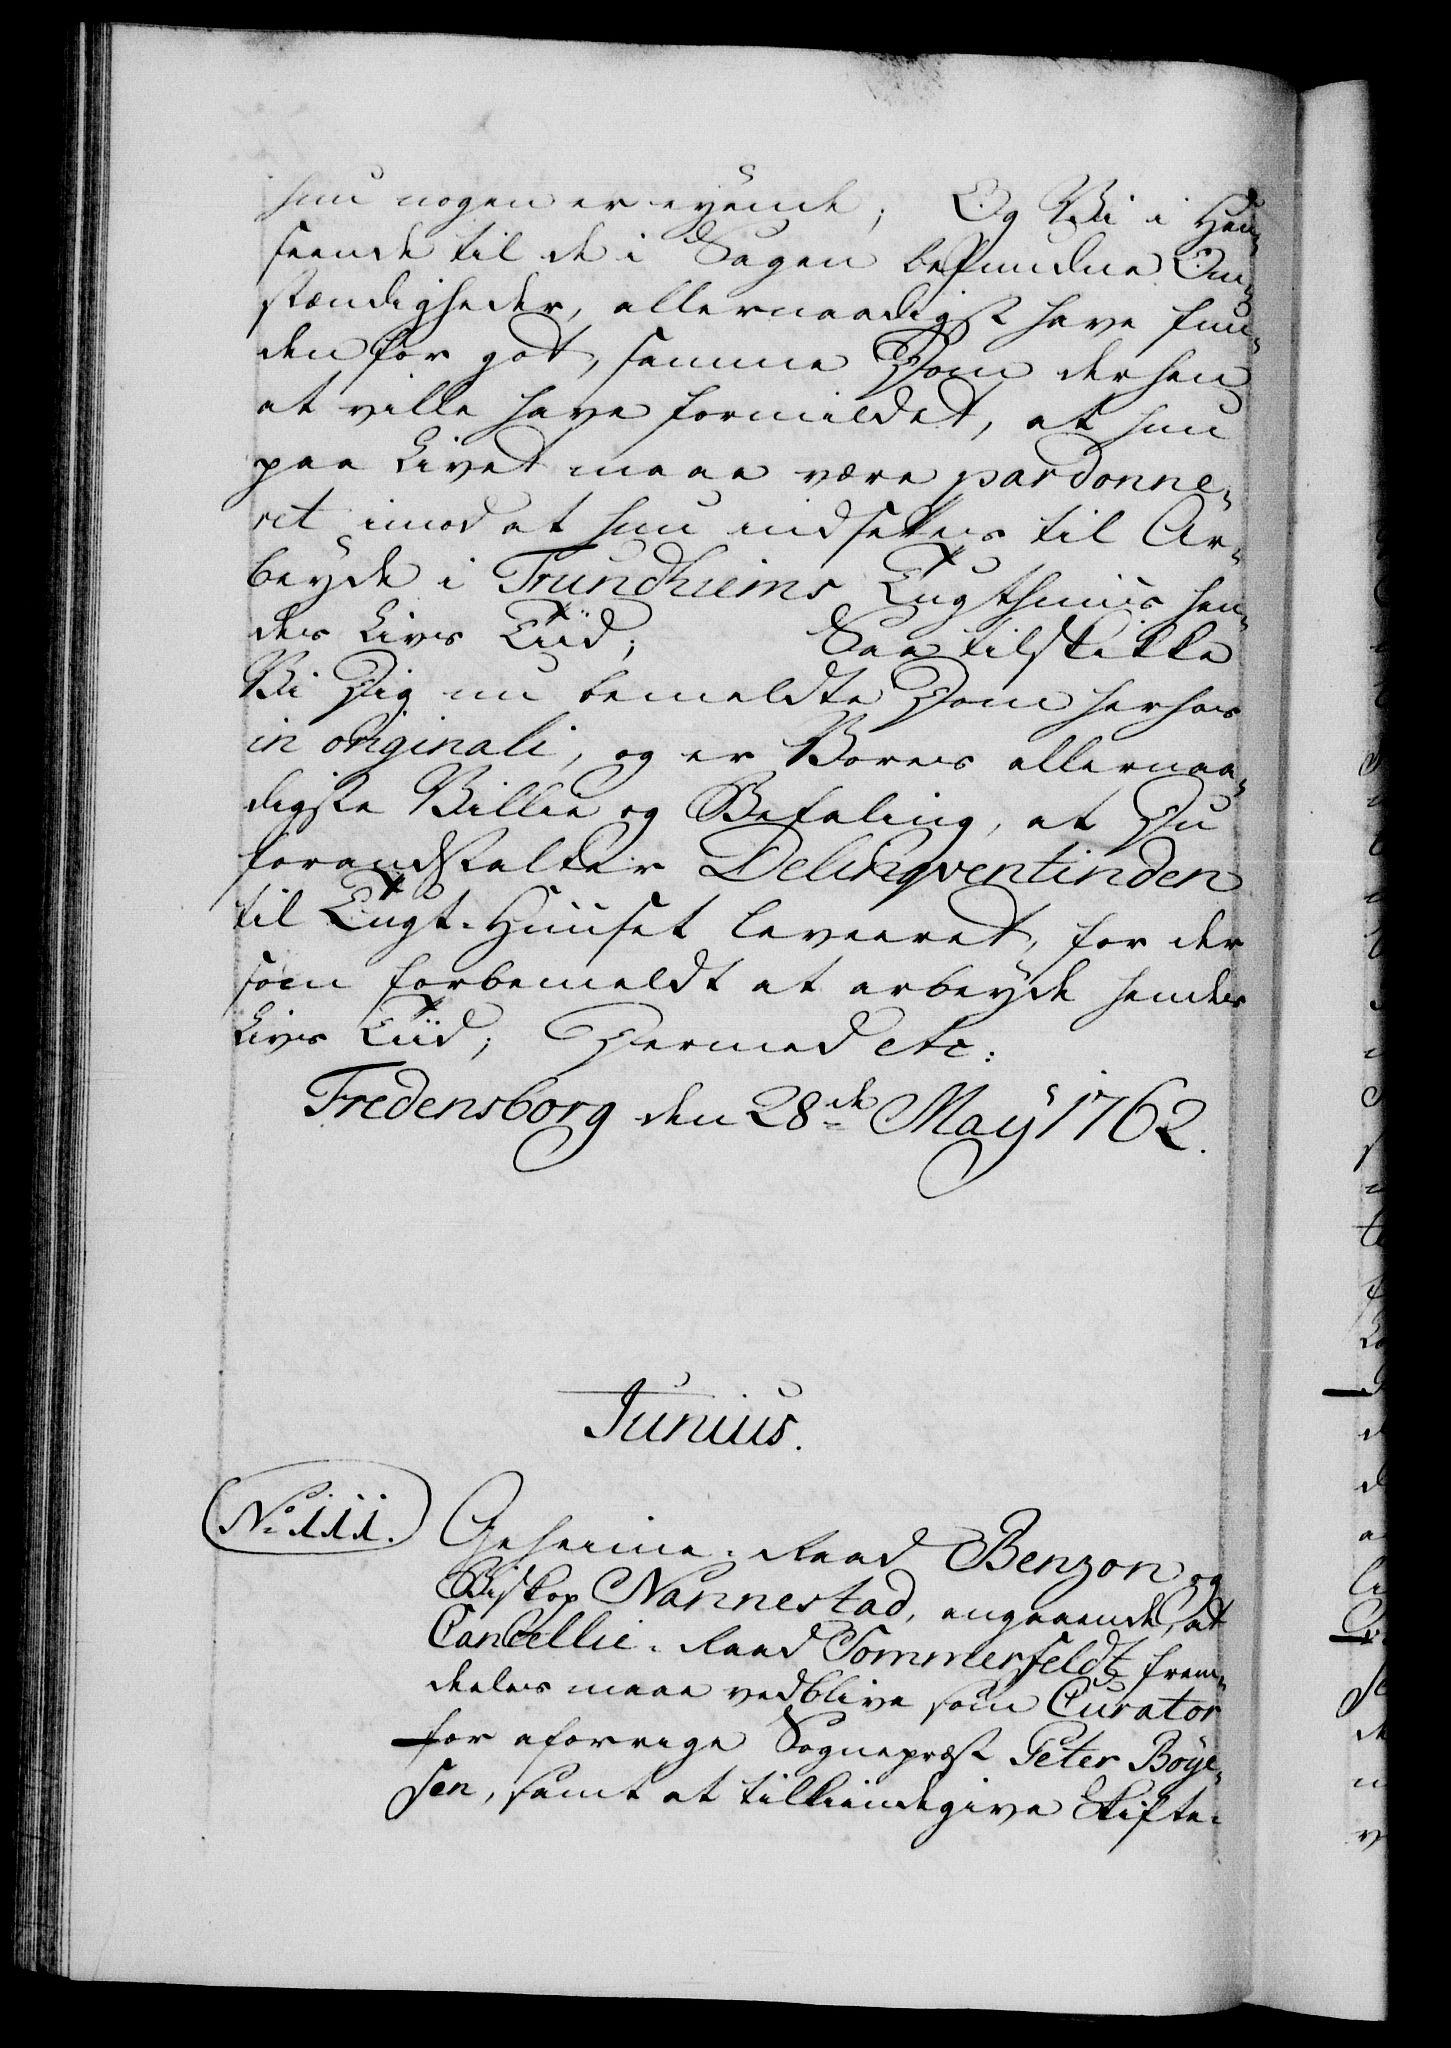 hun nogen er eyende; Og Vi i Hen-
seende til de i Sagen befundne Om-
stændigheder, allernaadigst have fun-
den for got, samme Dom derhen
at ville have formildet, at hun
paa Livet maae være pardonne-
ret imod at hun indsettes til Ar-
beyde i Trundhiems Tugthuus hen-
des Livs Tiid; Saa tilskikke
Vi Dig nu bemeldte Dom herhos
in originali, og er Vores allernaa-
digste Villie og Befaling, at Du
foranstalter Delinqventinden
til Tugt-Huuset leveeret, for der
som forbemeldt at arbeyde hendes
Livs Tiid; Dermed etc:
Fredensborg den 28de May 1762.
Junius.
No 111. Geheime-Raad Benzon og
Biskop Nannestad, angaaende, at
Cancellie-Raad Sommerfeldt frem-
deeles maae vedblive som Curator
for aforrige Sognepræst Peter Böye-
sen, samt at tilkiendegive Skifte-